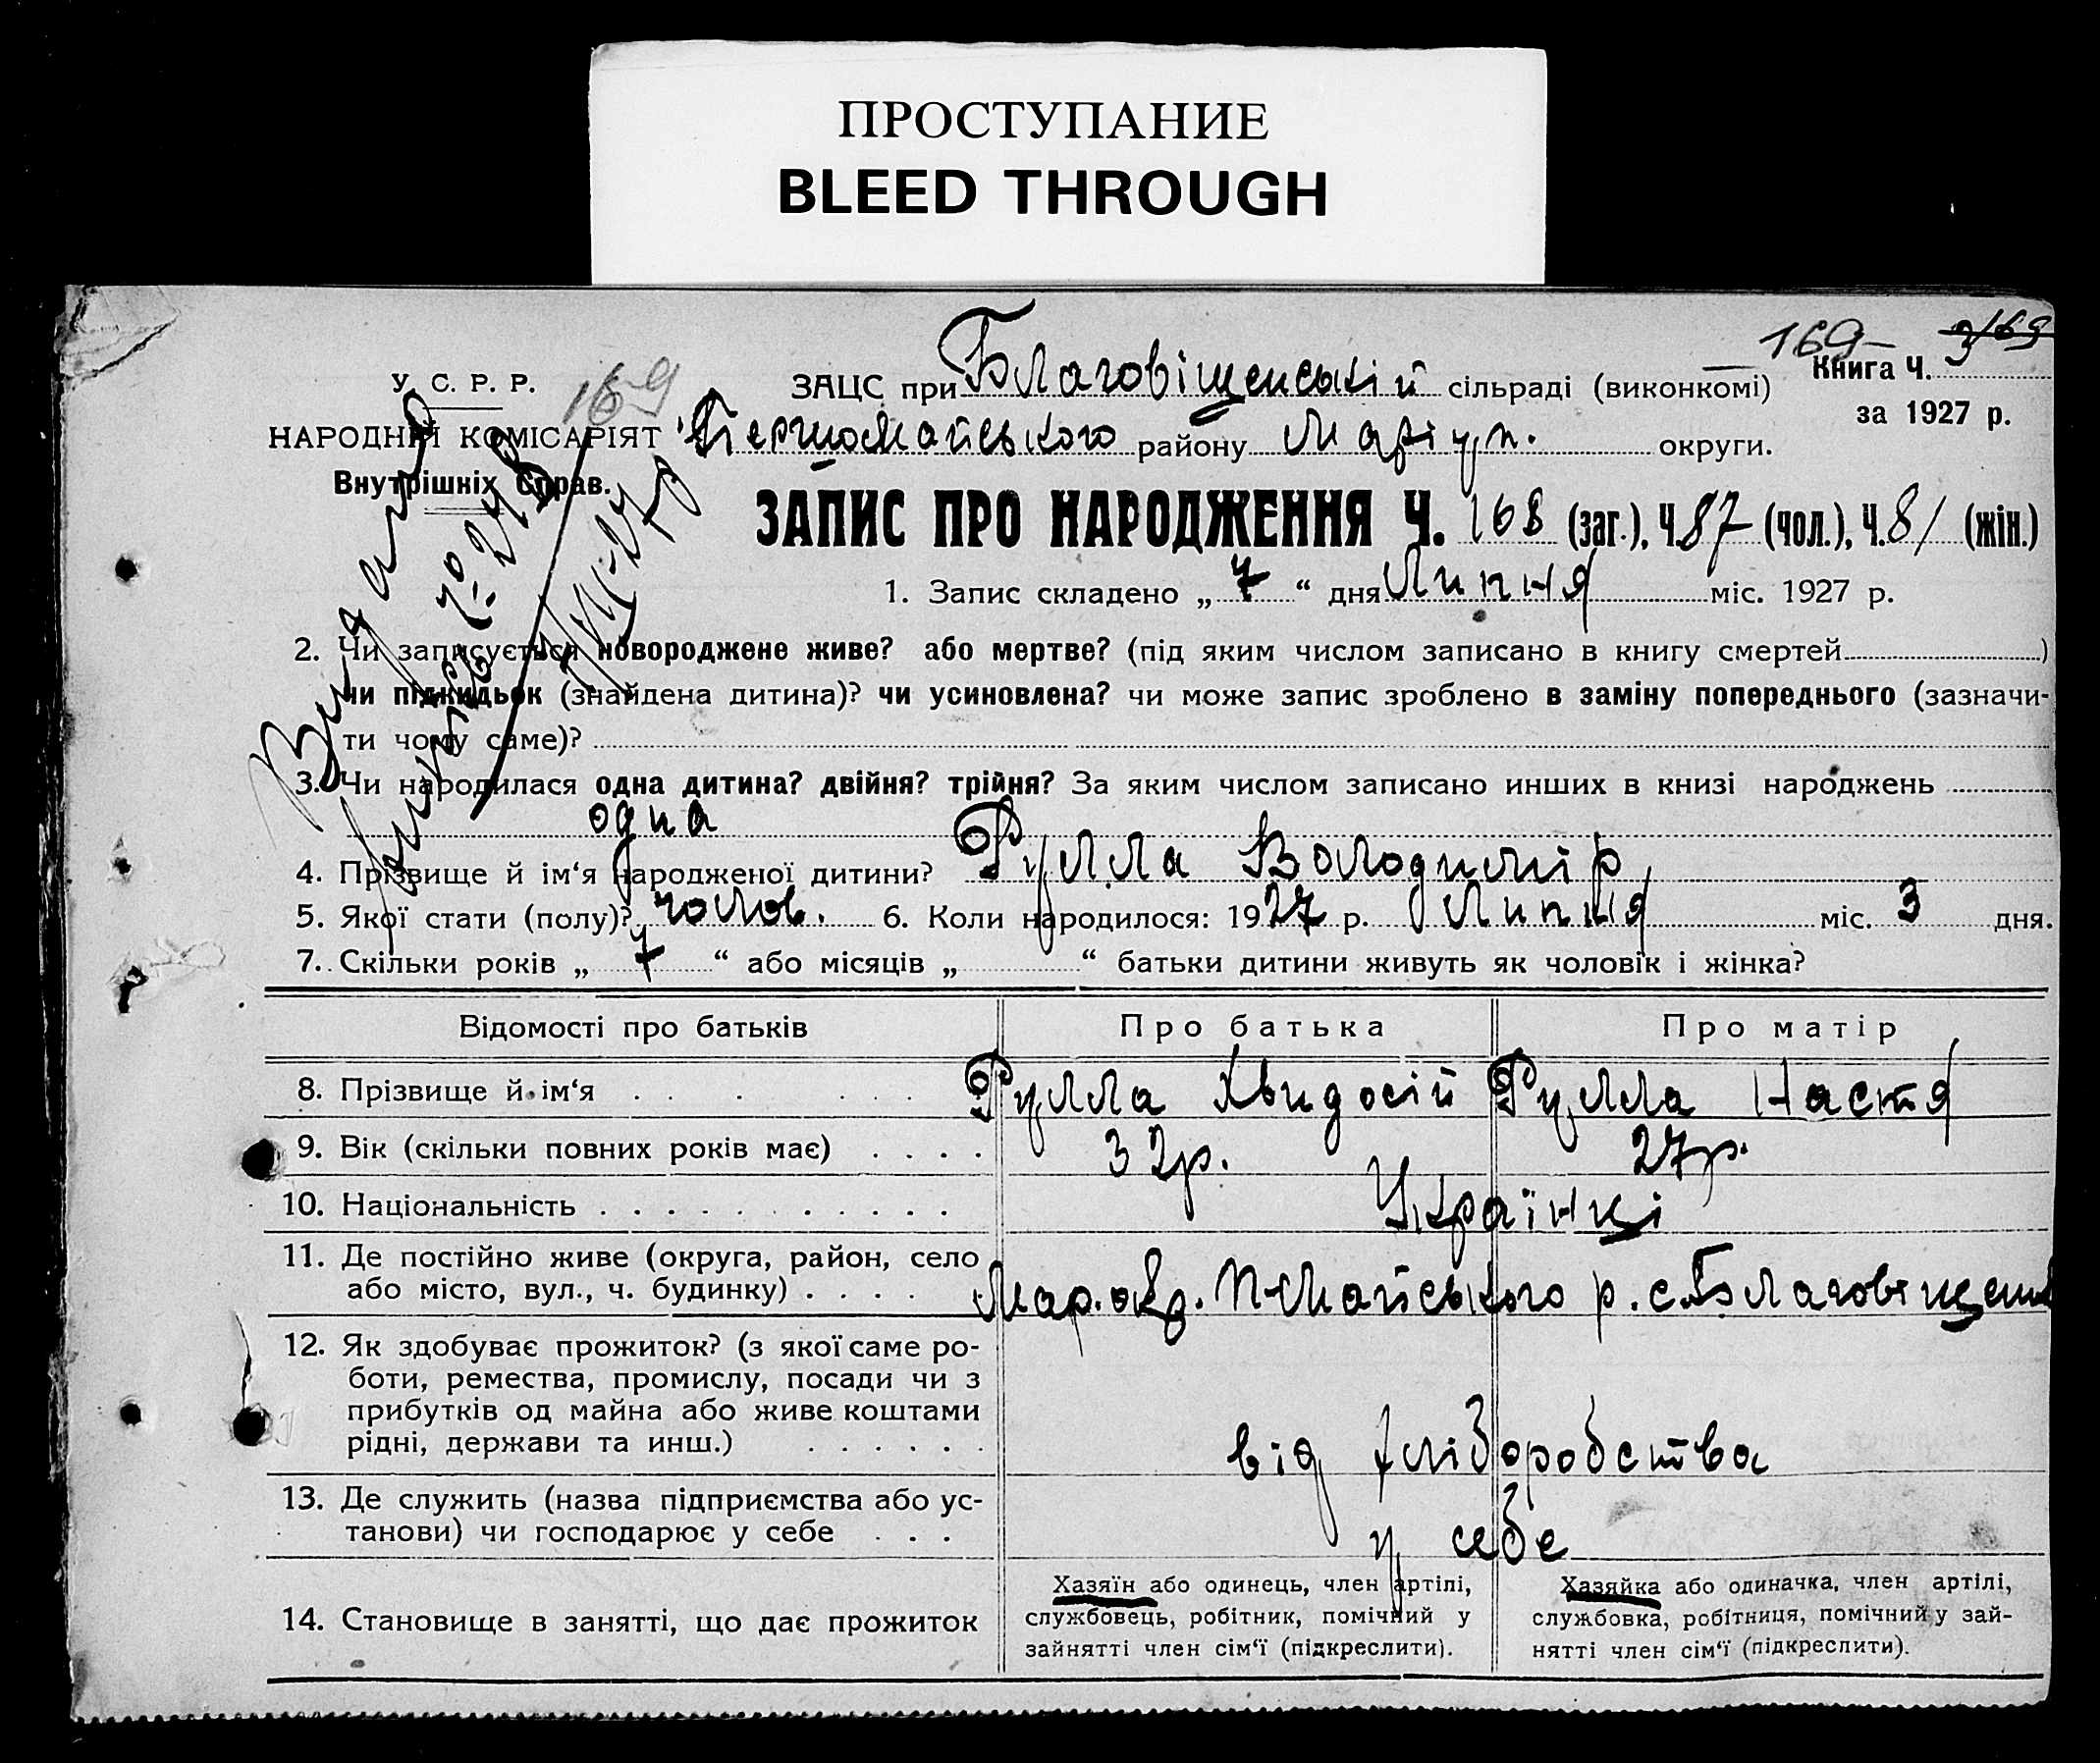 ПРОСТУПАНИЕ
BLEED THROUGH
169 3/169
У. С. Р. Р. 169 ЗАЦС при Благовіщенській сільраді (виконкомі) Книга Ч. 3
НАРОДНІЙ КОМІСАРІЯТ Першомайського району Маріуп. округи. за 1927 р.
Внутрішніх Справ.
Видано
№ 248
7/VII-27р
ЗАПИС ПРО НАРОДЖЕННЯ Ч. 168 (заг.), Ч. 87 (чол.), Ч. 81 (жін.)
1. Запис складено „ 7 “ дня Липня міс. 1927 р.
2. Чи записується новороджене живе? або мертве? (під яким числом записано в книгу смертей )
чи підкидьок (знайдена дитина)? чи усиновлена? чи може запис зроблено в заміну попереднього (зазначи-
ти чому саме)?
3. Чи народилася одна дитина? двійня? трійня? За яким числом записано инших в книзі народжень
одна
4. Прізвище й ім‘я народженої дитини? Рулла Володимір
5. Якої стати (полу)? чолов. 6. Коли народилося: 1927 р. Липня міс. 3 дня.
7. Скільки років „ 7 “ або місяців „ “ батьки дитини живуть як чоловік і жінка?
Відомості про батьків Про батька Про матір
8. Прізвище й ім‘я Рулла Хвидосій Рулла Настя
9. Вік (скільки повних років має) 32р. 27р.
10. Національність Українці
11. Де постійно живе (округа, район, село
або місто, вул., ч. будинку) Мар. окр. П-Майського р. с. Благовіщенк
12. Як здобуває прожиток? (з якої саме ро-
боти, ремества, промислу, посади чи з
прибутків од майна або живе коштами
рідні, держави та инш.) від хліборобства
13. Де служить (назва підприємства або ус-
танови) чи господарює у себе у себе
14. Становище в занятті, що дає прожиток
Хазяїн або одинець, член артілі,
службовець, робітник, помічний у
зайнятті член сім‘ї (підкреслити).
Хазяйка або одиначка, член артілі,
службовка, робітниця, помічний у зай-
нятті член сім‘ї (підкреслити).